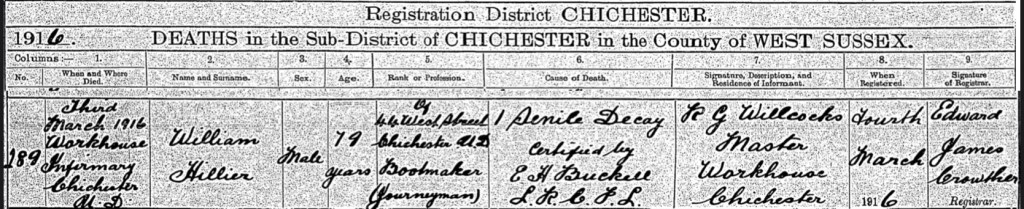 Registration District CHICHESTER.
1916. DEATHS in the Sub-District of CHICHESTER in the County of WEST SUSSEX.
Columns:— 1. 2. 3. 4. 5. 6. 7. 8. 9.
No. When and Where Died. Name and Surname. Sex. Age. Rank or Profession. Cause of Death. Signature, Description, and Residence of Informant. When Registered. Signature of Registrar.
189
Third
March 1916
Workhouse
Infirmary
Chichester
U.D.
William
Hillier
Male
79
years
Of
44 West Street
Chichester U.D
Bootmaker
(Journeyman)
1 Senile Decay
Certified by
E A Buckell
L.R.C.P.L.
R G Willcocks
Master
Workhouse
Chichester
Fourth
March
1916
Edward
James
Crowther
Registrar.